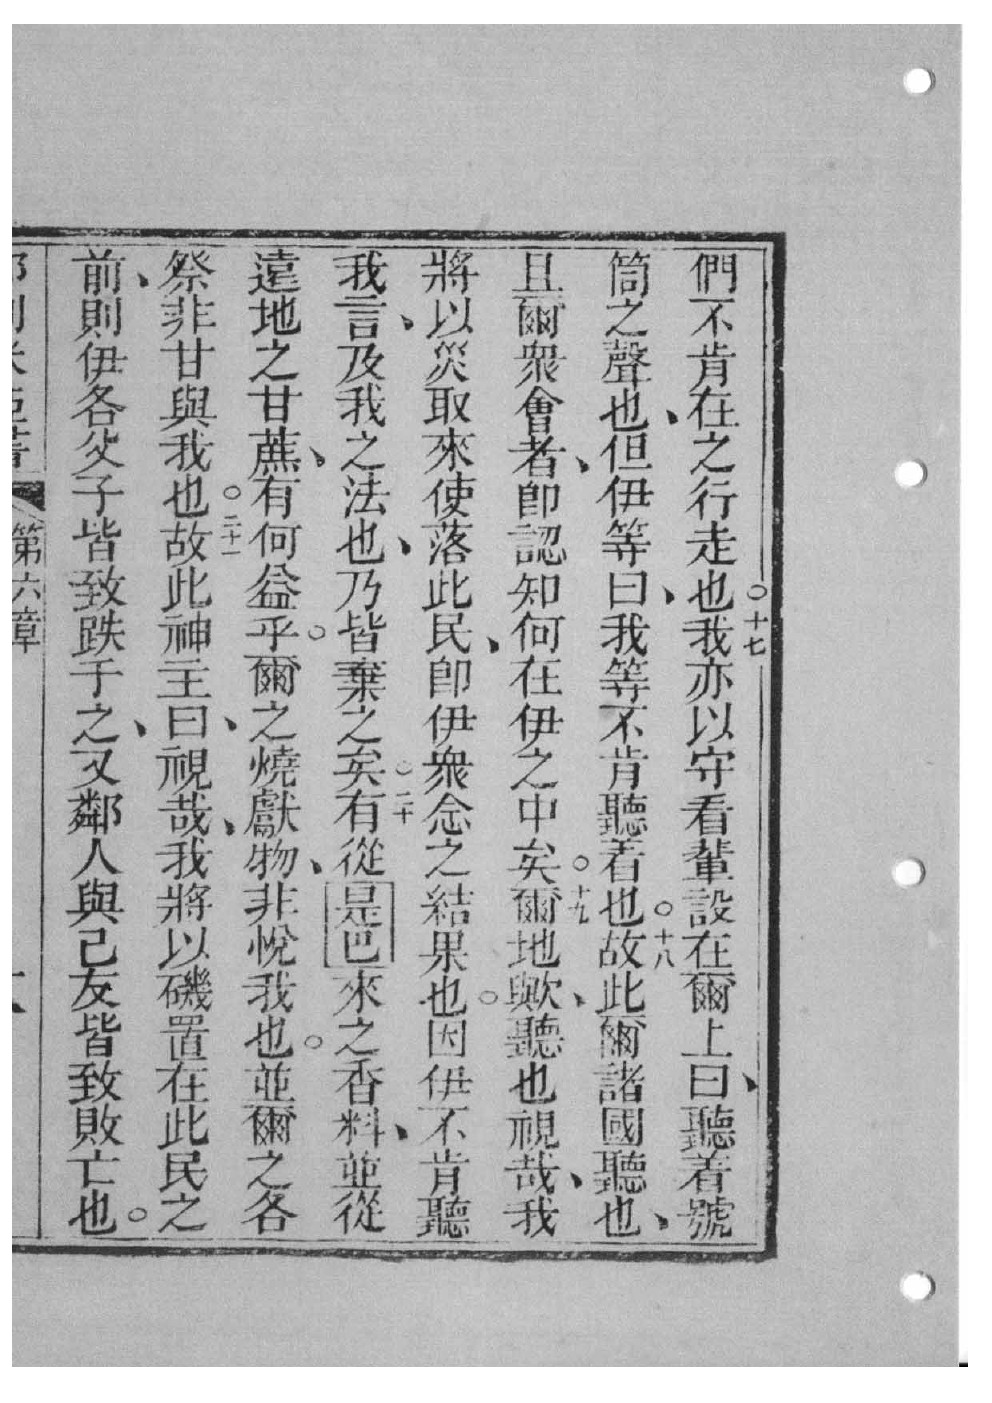 們不肯在之行走也○十七我亦以守看輩設在爾上曰、聽着號
筒之聲也、但伊等曰、我等不肯聽着也○十八故此爾諸國聽也、
且爾衆會者、卽認知何在伊之中矣○十九爾地歟、聽也視哉、我
將以災取來使落此民、卽伊衆念之結果也○因伊不肯聽
我言、及我之法也、乃皆棄之矣○二十有從是巴來之香料、並從
遠地之甘蕉、有何益乎○爾之燒獻物、非悅我也○並爾之各
祭非甘與我也○二十一故此神主曰、視哉、我將以磯置在此民之
前、則伊各父子皆致跌于之、又鄰人與己友皆致敗亡也○
第六章